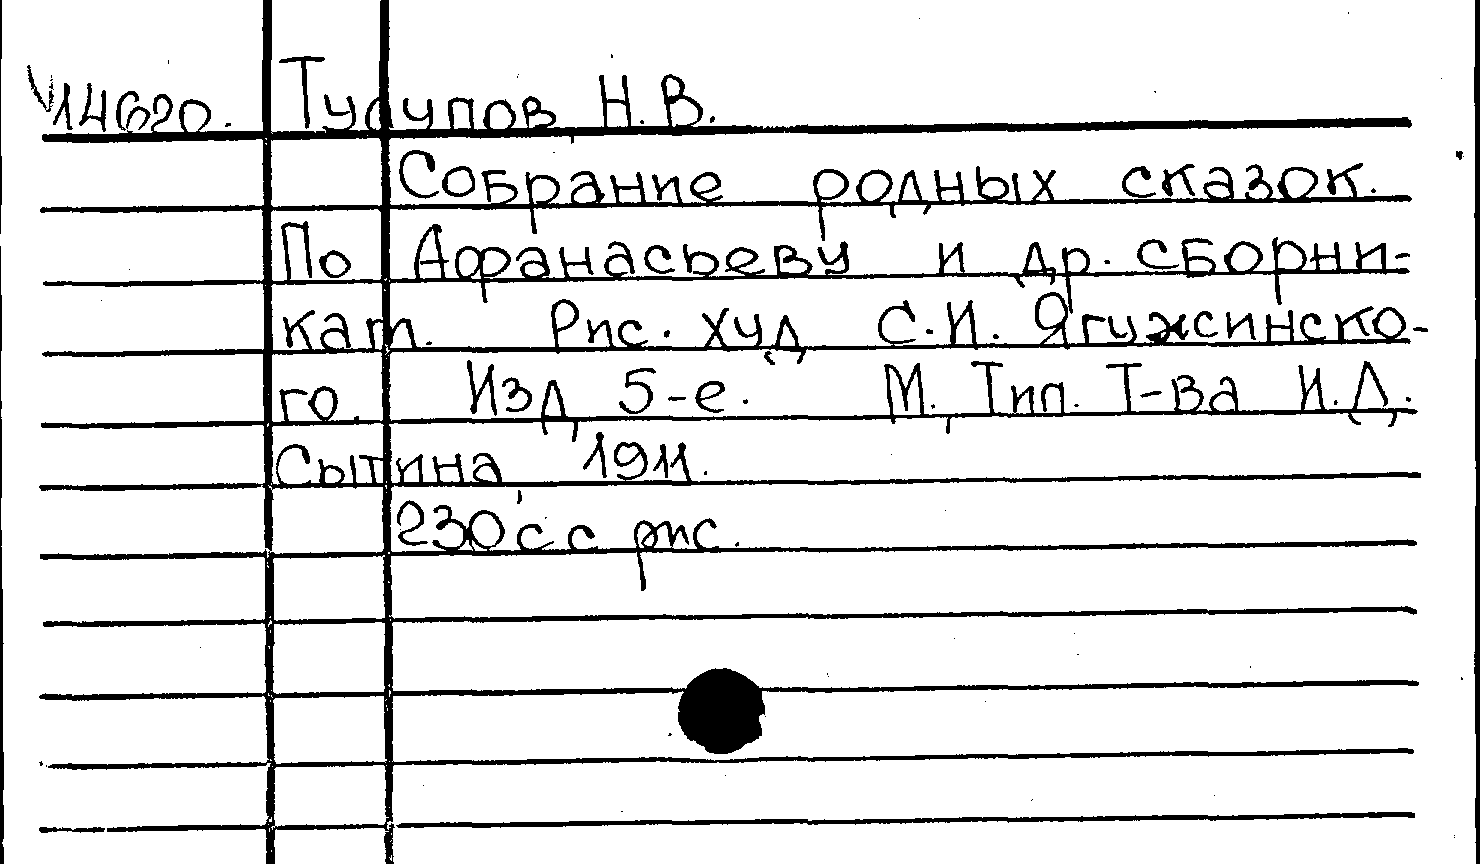 14620. Тулупов Н.В.
Собрание родных сказок.
По Афанасьеву и др. сборни-
кам. Рис. худ С.И. Ягужинско-
го. Изд 5-е. М. Тип. Т-ва И.Д.
Сытина 1911.
230 с с рис.